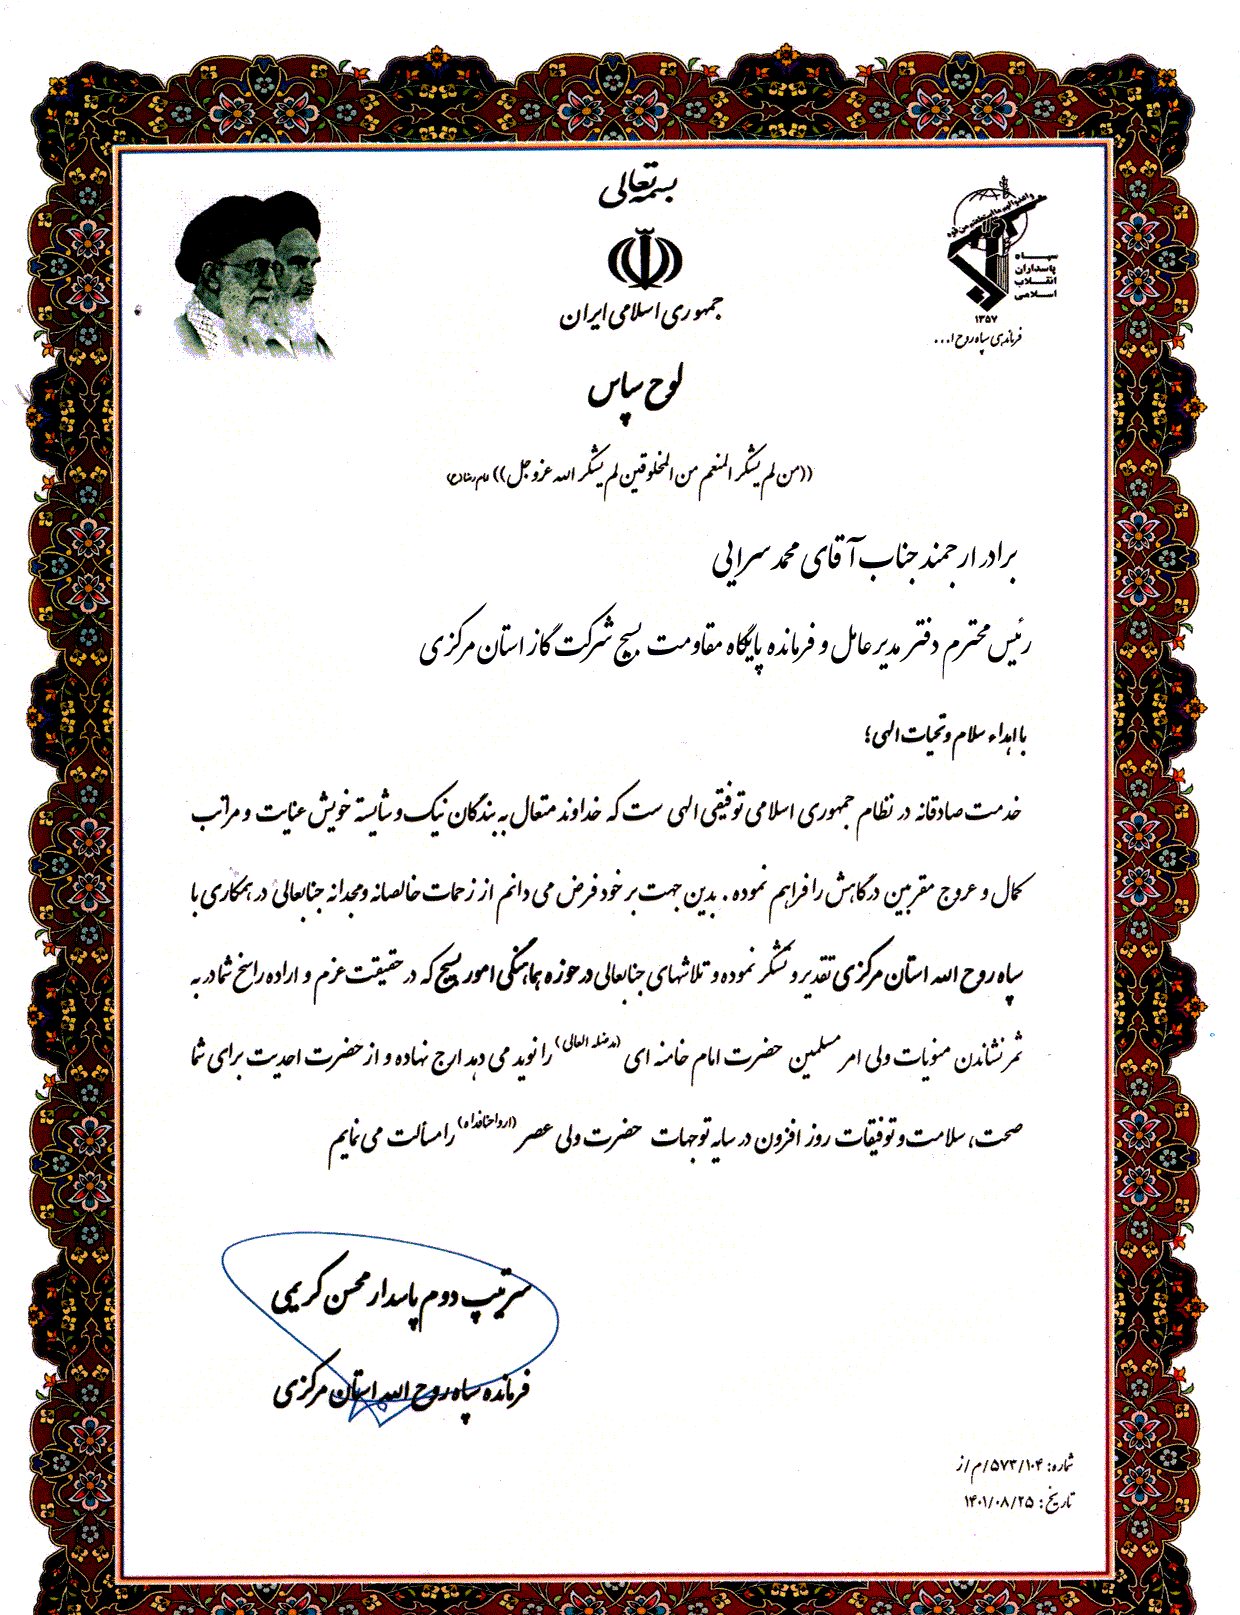 بسمه تعالی
جمهوری اسلامی ایران
سپاه
پاسداران
انقلاب
اسلامی
۱۳۵۷
فرماندهی سپاه روح ا...
لوح سپاس
((من لم یشکر المنعم من المخلوقین لم یشکر الله عزوجل)) امام رضا(ع)
برادر ارجمند جناب آقای محمد سرایی
رئیس محترم دفتر مدیرعامل و فرمانده پایگاه مقاومت بسیج شرکت گاز استان مرکزی
با اهداء سلام و تحیات الهی؛
خدمت صادقانه در نظام جمهوری اسلامی توفیقی الهی ست که خداوند متعال به بندگان نیک و شایسته خویش عنایت و مراتب
کمال و عروج مقربین درگاهش را فراهم نموده . بدین جهت بر خود فرض می دانم از زحمات خالصانه و مجدانه جنابعالی در همکاری با
سپاه روح الله استان مرکزی تقدیر و تشکر نموده و تلاشهای جنابعالی در حوزه هماهنگی امور بسیج که در حقیقت عزم و اراده راسخ شما در به
ثمر نشاندن منویات ولی امر مسلمین حضرت امام خامنه ای (مدظله العالی) را نوید می دهد ارج نهاده و از حضرت احدیت برای شما
صحت، سلامت و توفیقات روز افزون در سایه توجهات حضرت ولی عصر (ارواحنافداه) را مسألت می نمایم
سرتیپ دوم پاسدار محسن کریمی
فرمانده سپاه روح الله استان مرکزی
شماره: ۵۷۳/۱۰۴/م/ز
تاریخ: ۱۴۰۱/۰۸/۲۵